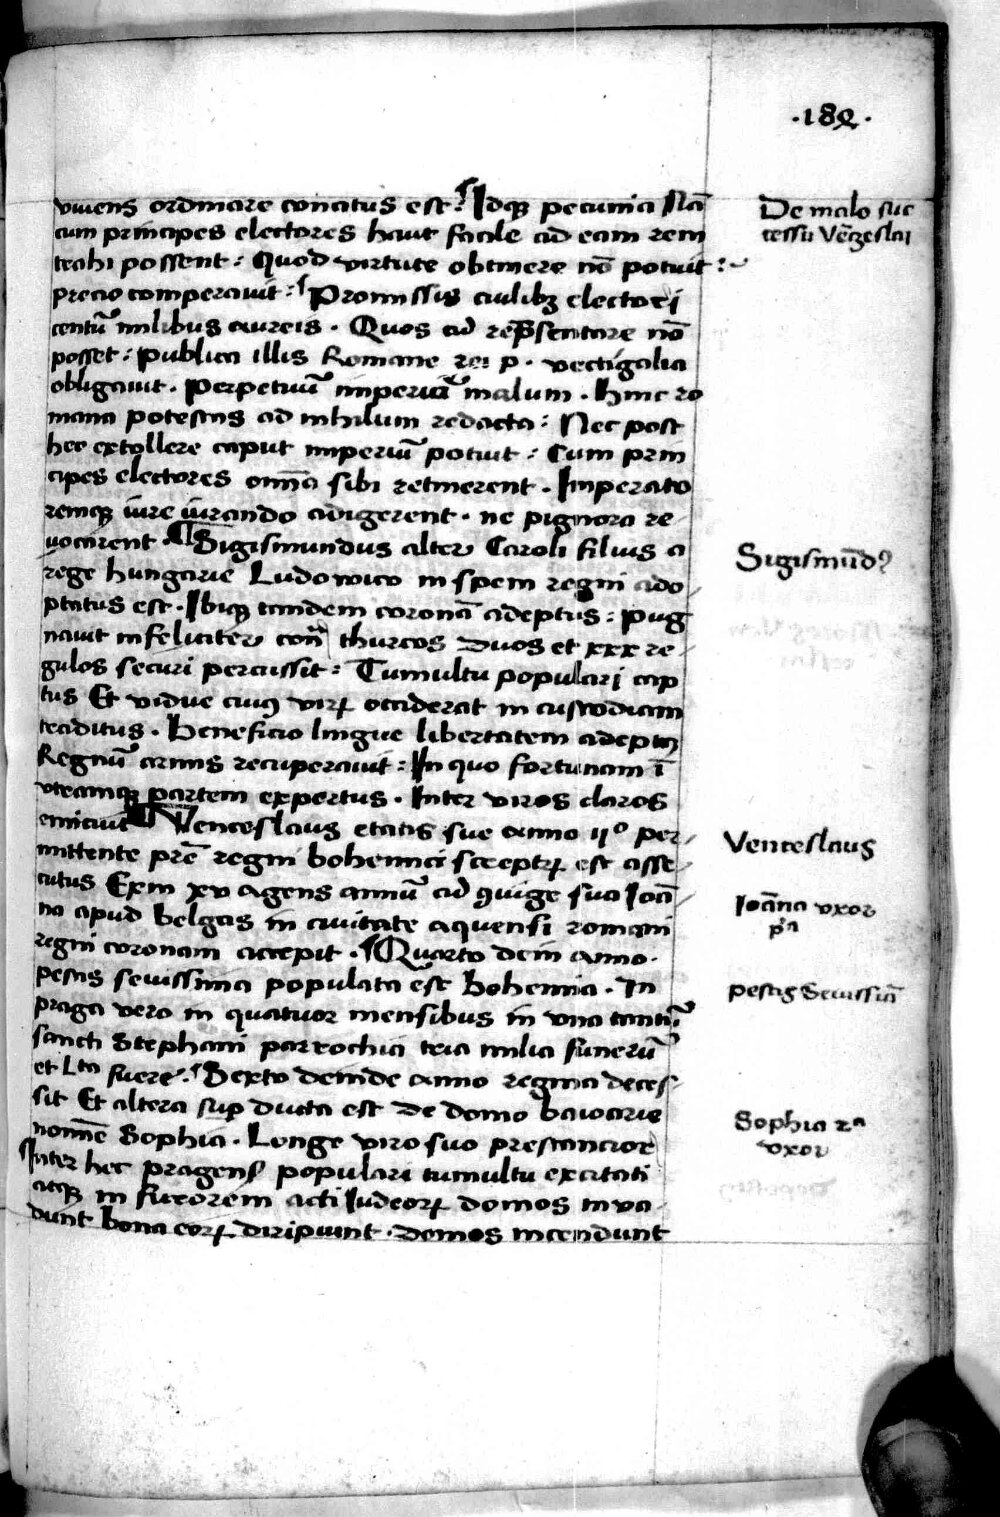 ·182·
viuens ordinare conatus est: Idq̃ pecunia Nā
cum principes electores haut facile ad eam rem
trahi possent: Quod virtute obtinere nō potuit:
precio comperauit: Promissis cuilibꝫ electori
centū milibus aureis. Quos cū rep̃sentare nō
posset: publica illis Romane rei p. vectigalia
obligauit. Perpetuū imperii malum. Hinc ro
mana potestas ad nihilum redacta: Nec post
hec extollere caput imperiū potuit: Cum prin
cipes electores om̄ia sibi retinerent. Imperato
remq̃ iure iurando adigerent. ne pignora re
uocarent. Sigismundus alter Caroli filius a
rege hungarie Ludowico in spem regni ado
ptatus est. Ibiq̃ tandem coronā adeptus: Pug
nauit infeliciter con̄ thurcos duos et xxx re
gulos securi percussit: Tumultu populari cap
tus Et vidue cuiꝰ virꝝ occiderat in custodiam
traditus. Beneficio lingue libertatem adeptꝰ
Regnū armis recuperauit: In quo fortunam ī
vtramq̃ partem expertus. Inter viros claros
emicuit Venceslaus etatis sue anno ii° per
mittente pr̄e regni bohemici sceptꝝ est asse
cutus Exin xv agens annū cū ꝯiuge sua Ioā
na apud belgas in ciuitate aquensi romani
regni coronam accepit. Quarto dein anno.
pestis seuissima populata est bohemia. In
praga vero in quatuor mensibus in vna tantū
sancti Stephani parrochia tria milia funerū
et Lta fuere. Sexto deinde anno regina deces
sit Et altera sup ducta est de domo bauarie
nom̄e Sophia. Longe viro suo prestancior
Inter hec pragens̃ populari tumultu excitati
atq̃ in furorem acti Iudeoꝝ domos inua
dunt bona eoꝝ diripiunt. domos incendunt
De malo suc
cessu Vēczeslai
Sigismūdꝰ
Venceslaus
Ioāna vxor
pᵃ
pestis Seuissiā
Sophia 2ᵃ
vxor